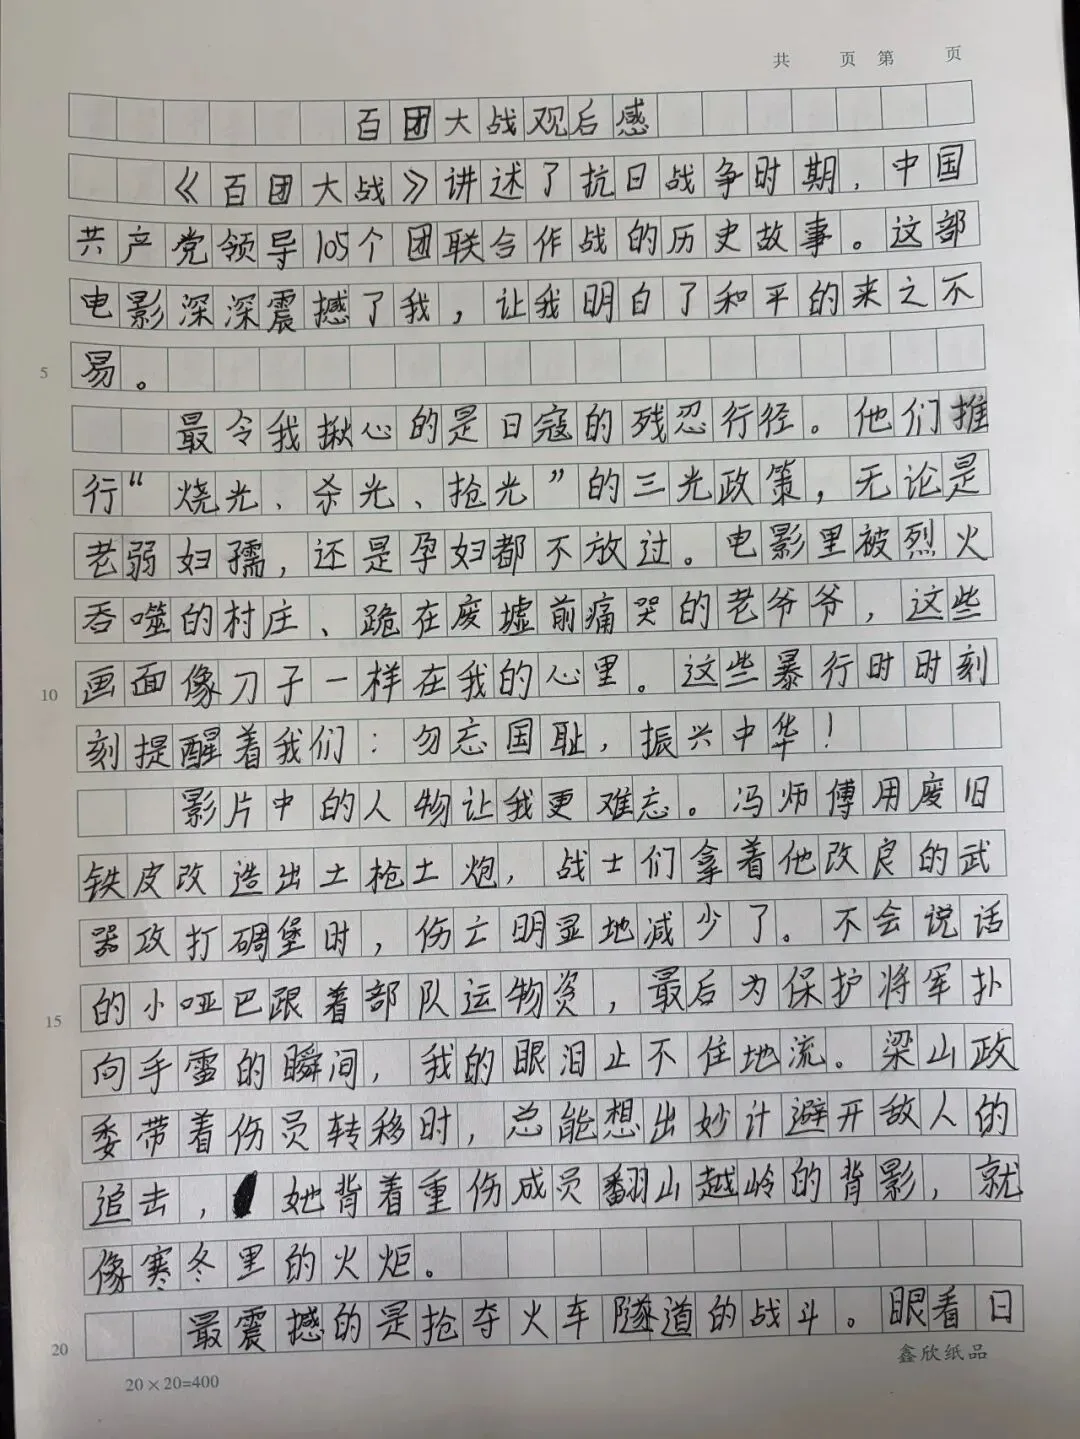 共 页 第 页
百团大战观后感
《百团大战》讲述了抗日战争时期，中国
共产党领导105个团联合作战的历史故事。这部
电影深深震撼了我，让我明白了和平的来之不
5 易。
最令我揪心的是日寇的残忍行径。他们推
行“烧光、杀光、抢光”的三光政策，无论是
老弱妇孺，还是孕妇都不放过。电影里被烈火
吞噬的村庄、跪在废墟前痛哭的老爷爷，这些
10 画面像刀子一样在我的心里。这些暴行时时刻
刻提醒着我们：勿忘国耻，振兴中华！
影片中的人物让我更难忘。冯师傅用废旧
铁皮改造出土枪土炮，战士们拿着他改良的武
器攻打碉堡时，伤亡明显地减少了。不会说话
15 的小哑巴跟着部队运物资，最后为保护将军扑
向手雷的瞬间，我的眼泪止不住地流。梁山政
委带着伤员转移时，总能想出妙计避开敌人的
追去，她背着重伤成员翻山越岭的背影，就
像寒冬里的火炬。
20 最震撼的是抢夺火车隧道的战斗。眼看日
鑫欣纸品
20×20=400